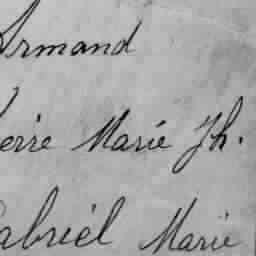 Armand
Pierre Marie Jh.
Gabriel Marie